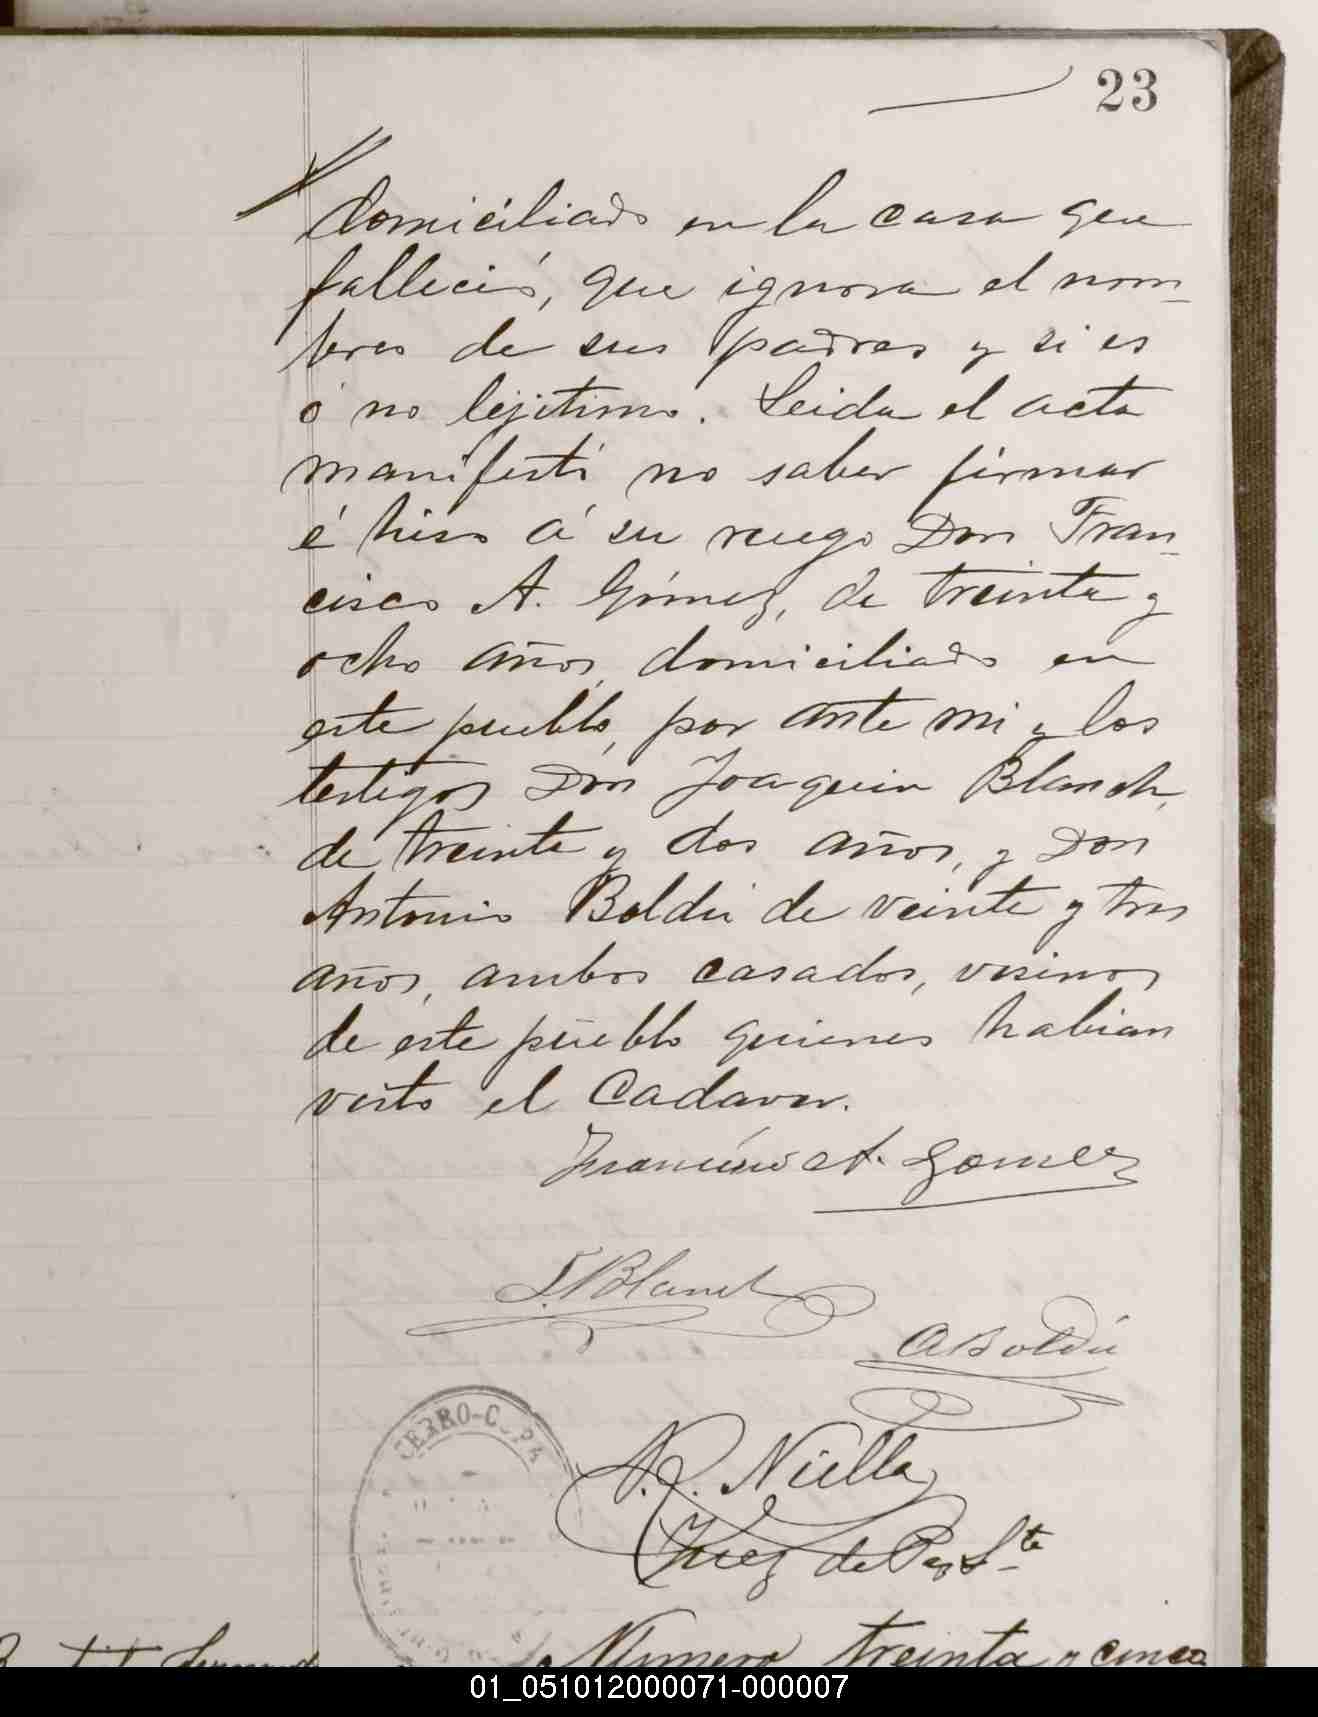 23
domiciliado en la casa que
falleció, que ignora el nom-
bres de sus padres y si es
ó no lejitimo. Leida el acta
manifestó no saber firmar
é hiso á su ruego Don Fran-
cisco A. Gómez, de treinta y
ocho años, domiciliado en
este pueblo, por ante mi y los
testigos Don Joaquin Blanch,
de treinta y dos años, y Don
Antonio Boldú de veinte y tres
años, ambos casados, vesinos
de este pueblo quienes habian
visto el Cadaver.
Francisco A. Gomez
J. Blanch
A Boldú
CERRO-CORÁ
N. P. Niella
Juez de Paz Ste
Numero treinta y cinco
01_051012000071-000007